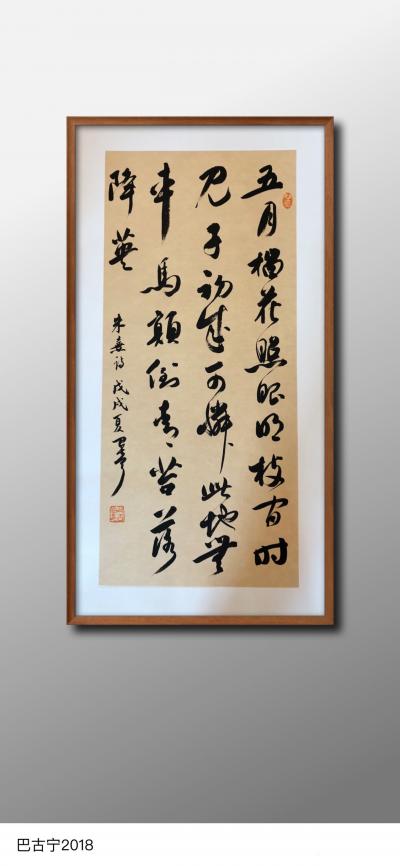 五月榴花照眼明枝间时
见子初成可憐此地無
車馬顛倒青苔落
降英
朱熹诗 戊戌夏
巴古宁2018